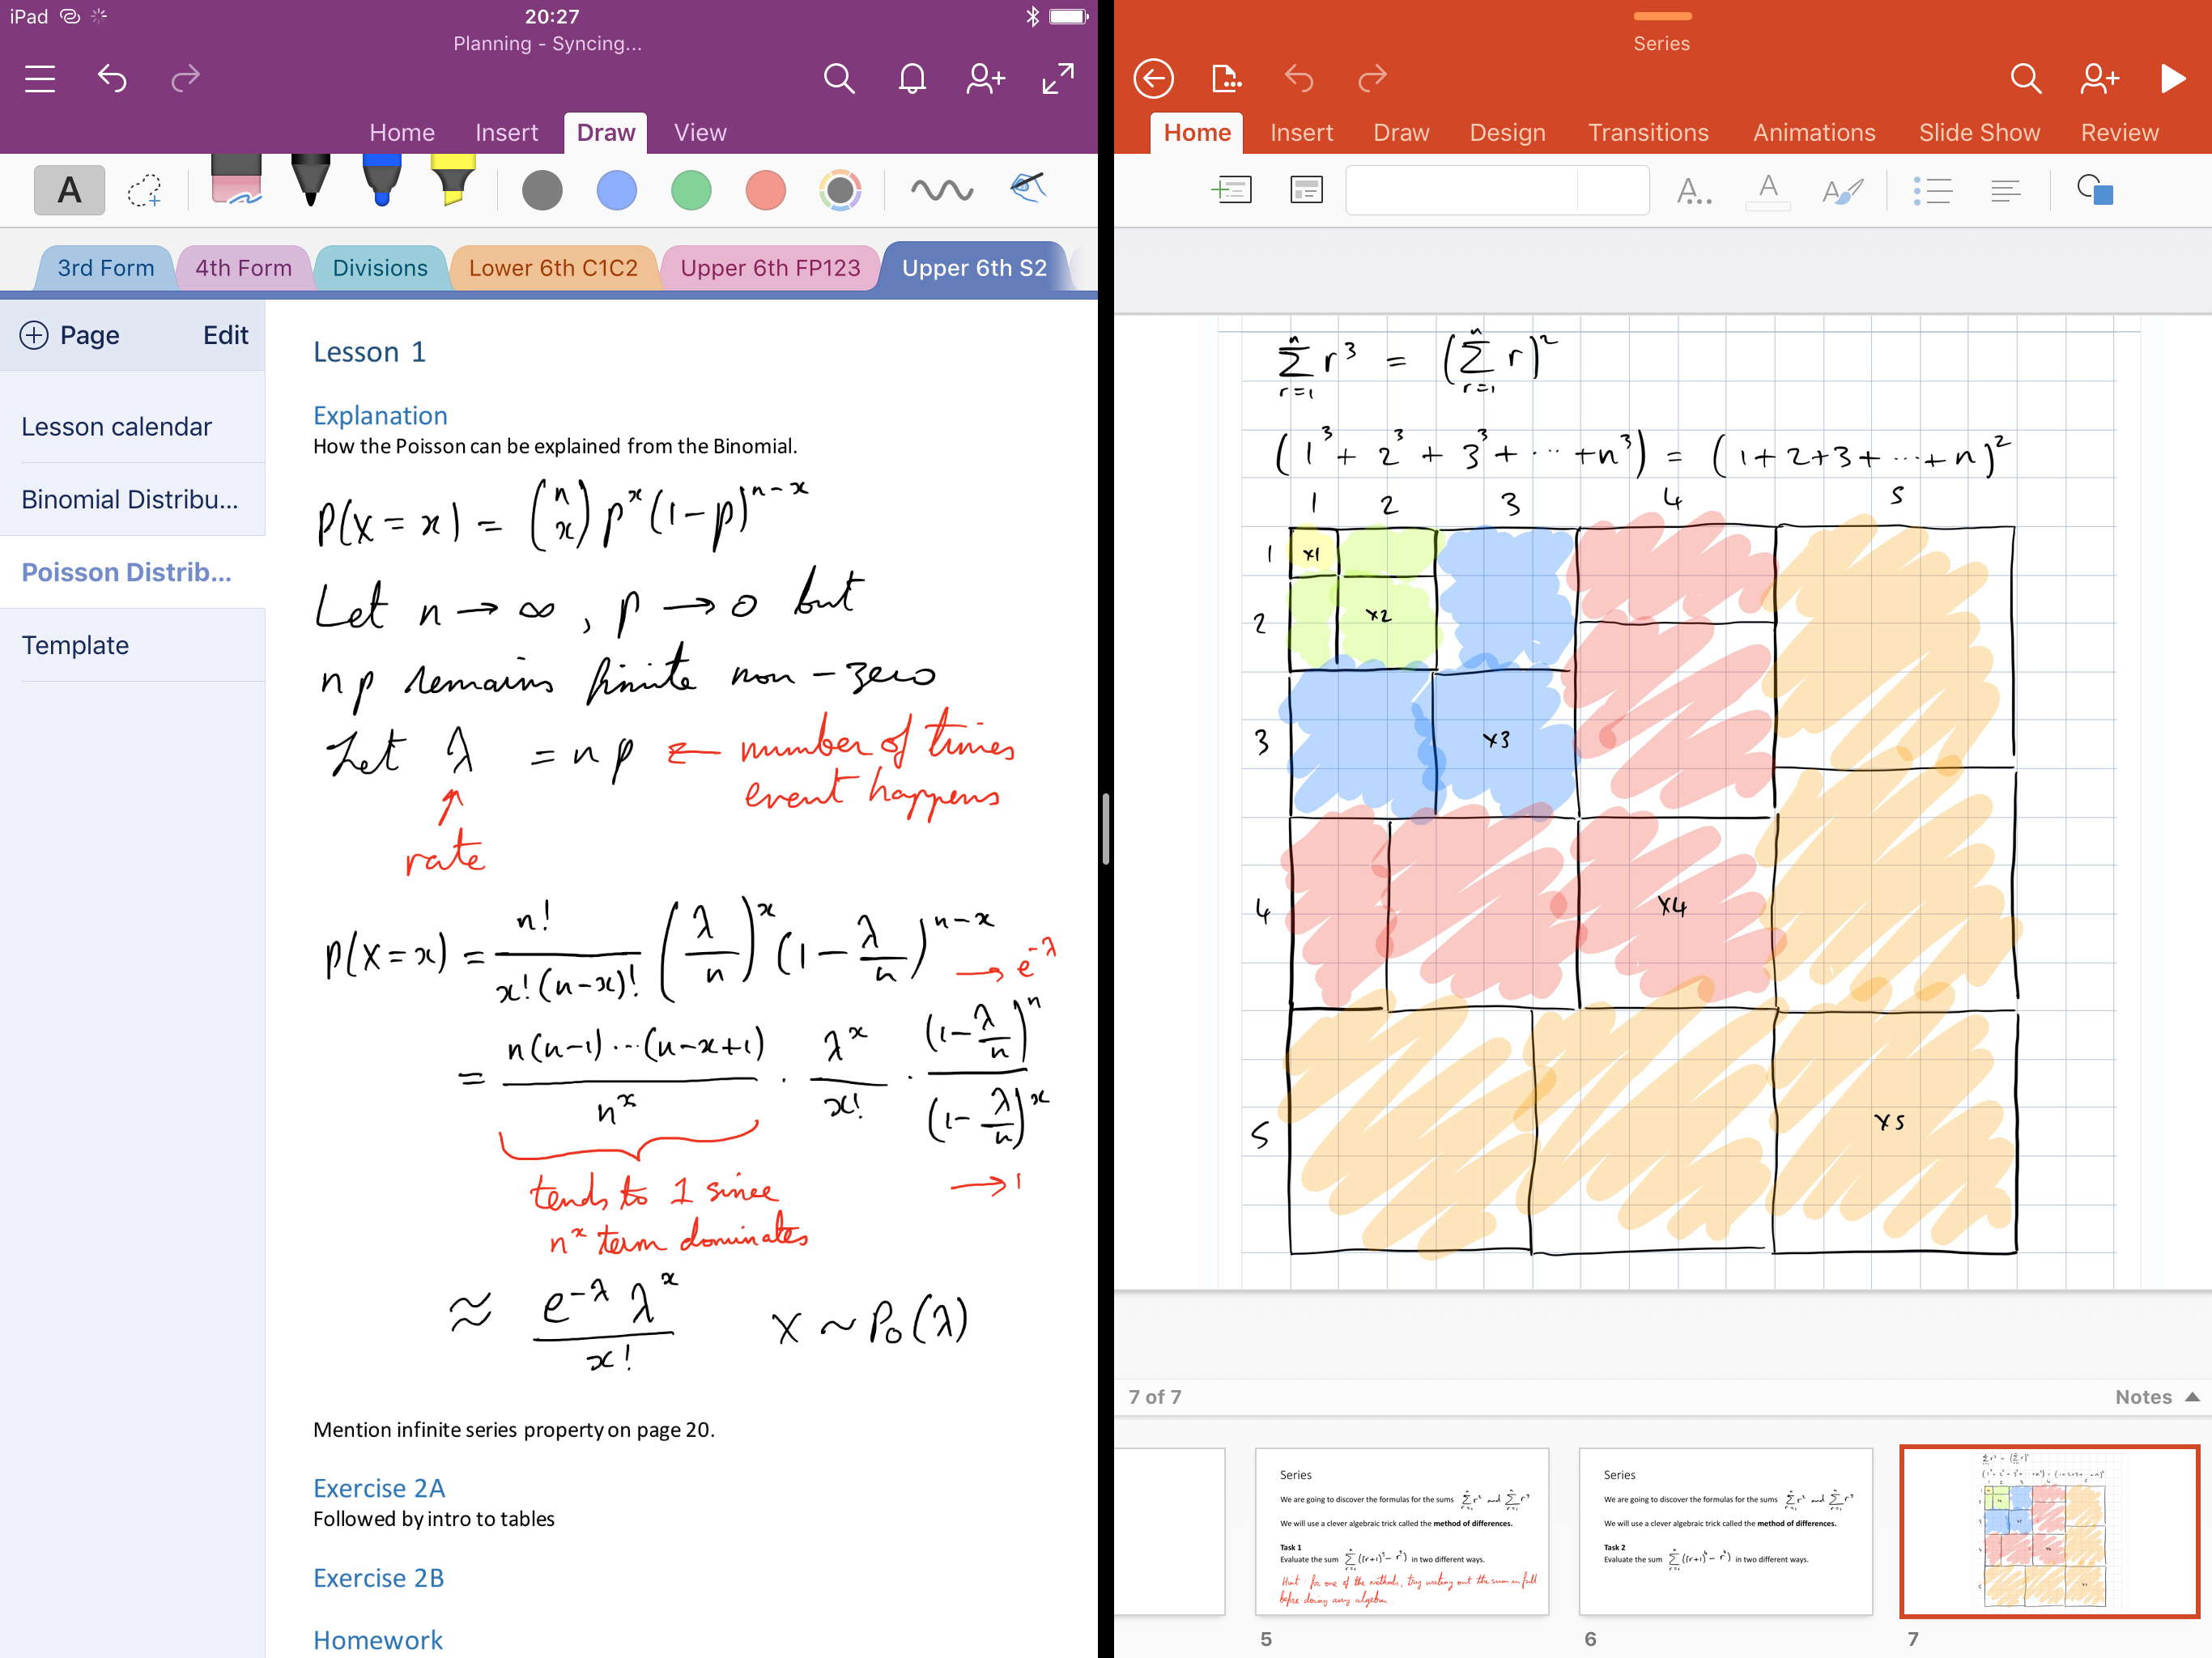 iPad
20:27
Planning - Syncing...
Home Insert Draw View
A
3rd Form 4th Form Divisions Lower 6th C1C2 Upper 6th FP123 Upper 6th S2
Page Edit
Lesson calendar
Binomial Distribu...
Poisson Distrib...
Template
Lesson 1
Explanation
How the Poisson can be explained from the Binomial.
P(X = x) = (n x) p^x (1-p)^{n-x}
Let n → ∞, p → 0 but
np remains finite non-zero
Let λ = np ← number of times
event happens
↑
rate
P(X = x) = n!/(x!(n-x)!) (λ/n)^x (1 - λ/n)^{n-x}
→ e^{-λ}
= n(n-1)···(n-x+1)/n^x · λ^x/x! · (1-λ/n)^n/(1-λ/n)^x
tends to 1 since
n^x term dominates
→ 1
≈ e^{-λ} λ^x/x! X ~ Po(λ)
Mention infinite series property on page 20.
Exercise 2A
Followed by intro to tables
Exercise 2B
Homework
Series
Home Insert Draw Design Transitions Animations Slide Show Review
A... A A
∑_{r=1}^n r^3 = (∑_{r=1}^n r)^2
(1^3 + 2^3 + 3^3 + ··· + n^3) = (1+2+3+ ··· + n)^2
1 2 3 4 5
1 x1
2 x2
3 x3
4 x4
5 x5
7 of 7
Notes
Series
We are going to discover the formulas for the sums ∑_{r=1}^n r^2 and ∑_{r=1}^n r^3
We will use a clever algebraic trick called the method of differences.
Task 1
Evaluate the sum ∑_{r=1}^n ((r+1)^3 - r^3) in two different ways.
Hint: for one of the methods, try writing out the sum in full
before doing any algebra.
5
Series
We are going to discover the formulas for the sums ∑_{r=1}^n r^2 and ∑_{r=1}^n r^3
We will use a clever algebraic trick called the method of differences.
Task 2
Evaluate the sum ∑_{r=1}^n ((r+1)^4 - r^4) in two different ways.
6
7